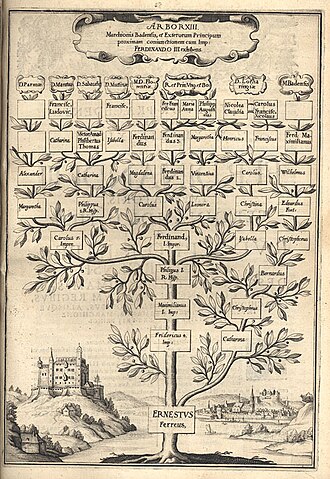 ARBOR XIII.
Marchionis Badensis, et Exterorum Principum
proximam coniunctionem cum Imp:
FERDINANDO III exhibens
D. Parmæ
D. Sabaud.
D. Mutinæ
M. D. Florentiæ
D. Lotharingiæ
M. Badensis
Francisc. Ludovic.
Francisc.
Maria Anna
Nicolea Claudia
Carolus Franciscus
Catharina
Philibertus Thomas
Isabella
Ferdinandus
Ferdinandus 2.
Margaretha
Henricus
Franciscus
Ferd. Maximilianus
Alexander
Catharina
Magdalena
Ferdinandus 1.
Vincentius
Carolus
Wilhelmus
Margaretha
Philippus 2. R. Hisp.
Carolus
Leonora
Christina
Eduardus Fort.
Carolus V. Imper.
Ferdinand. I. Imper.
Isabella
Christophorus
Philippus I R. Hisp.
Bernardus
Maximilianus I. Imp:
Christophorus
Fridericus 4. Imp:
Catharina
ERNESTVS
Ferreus.